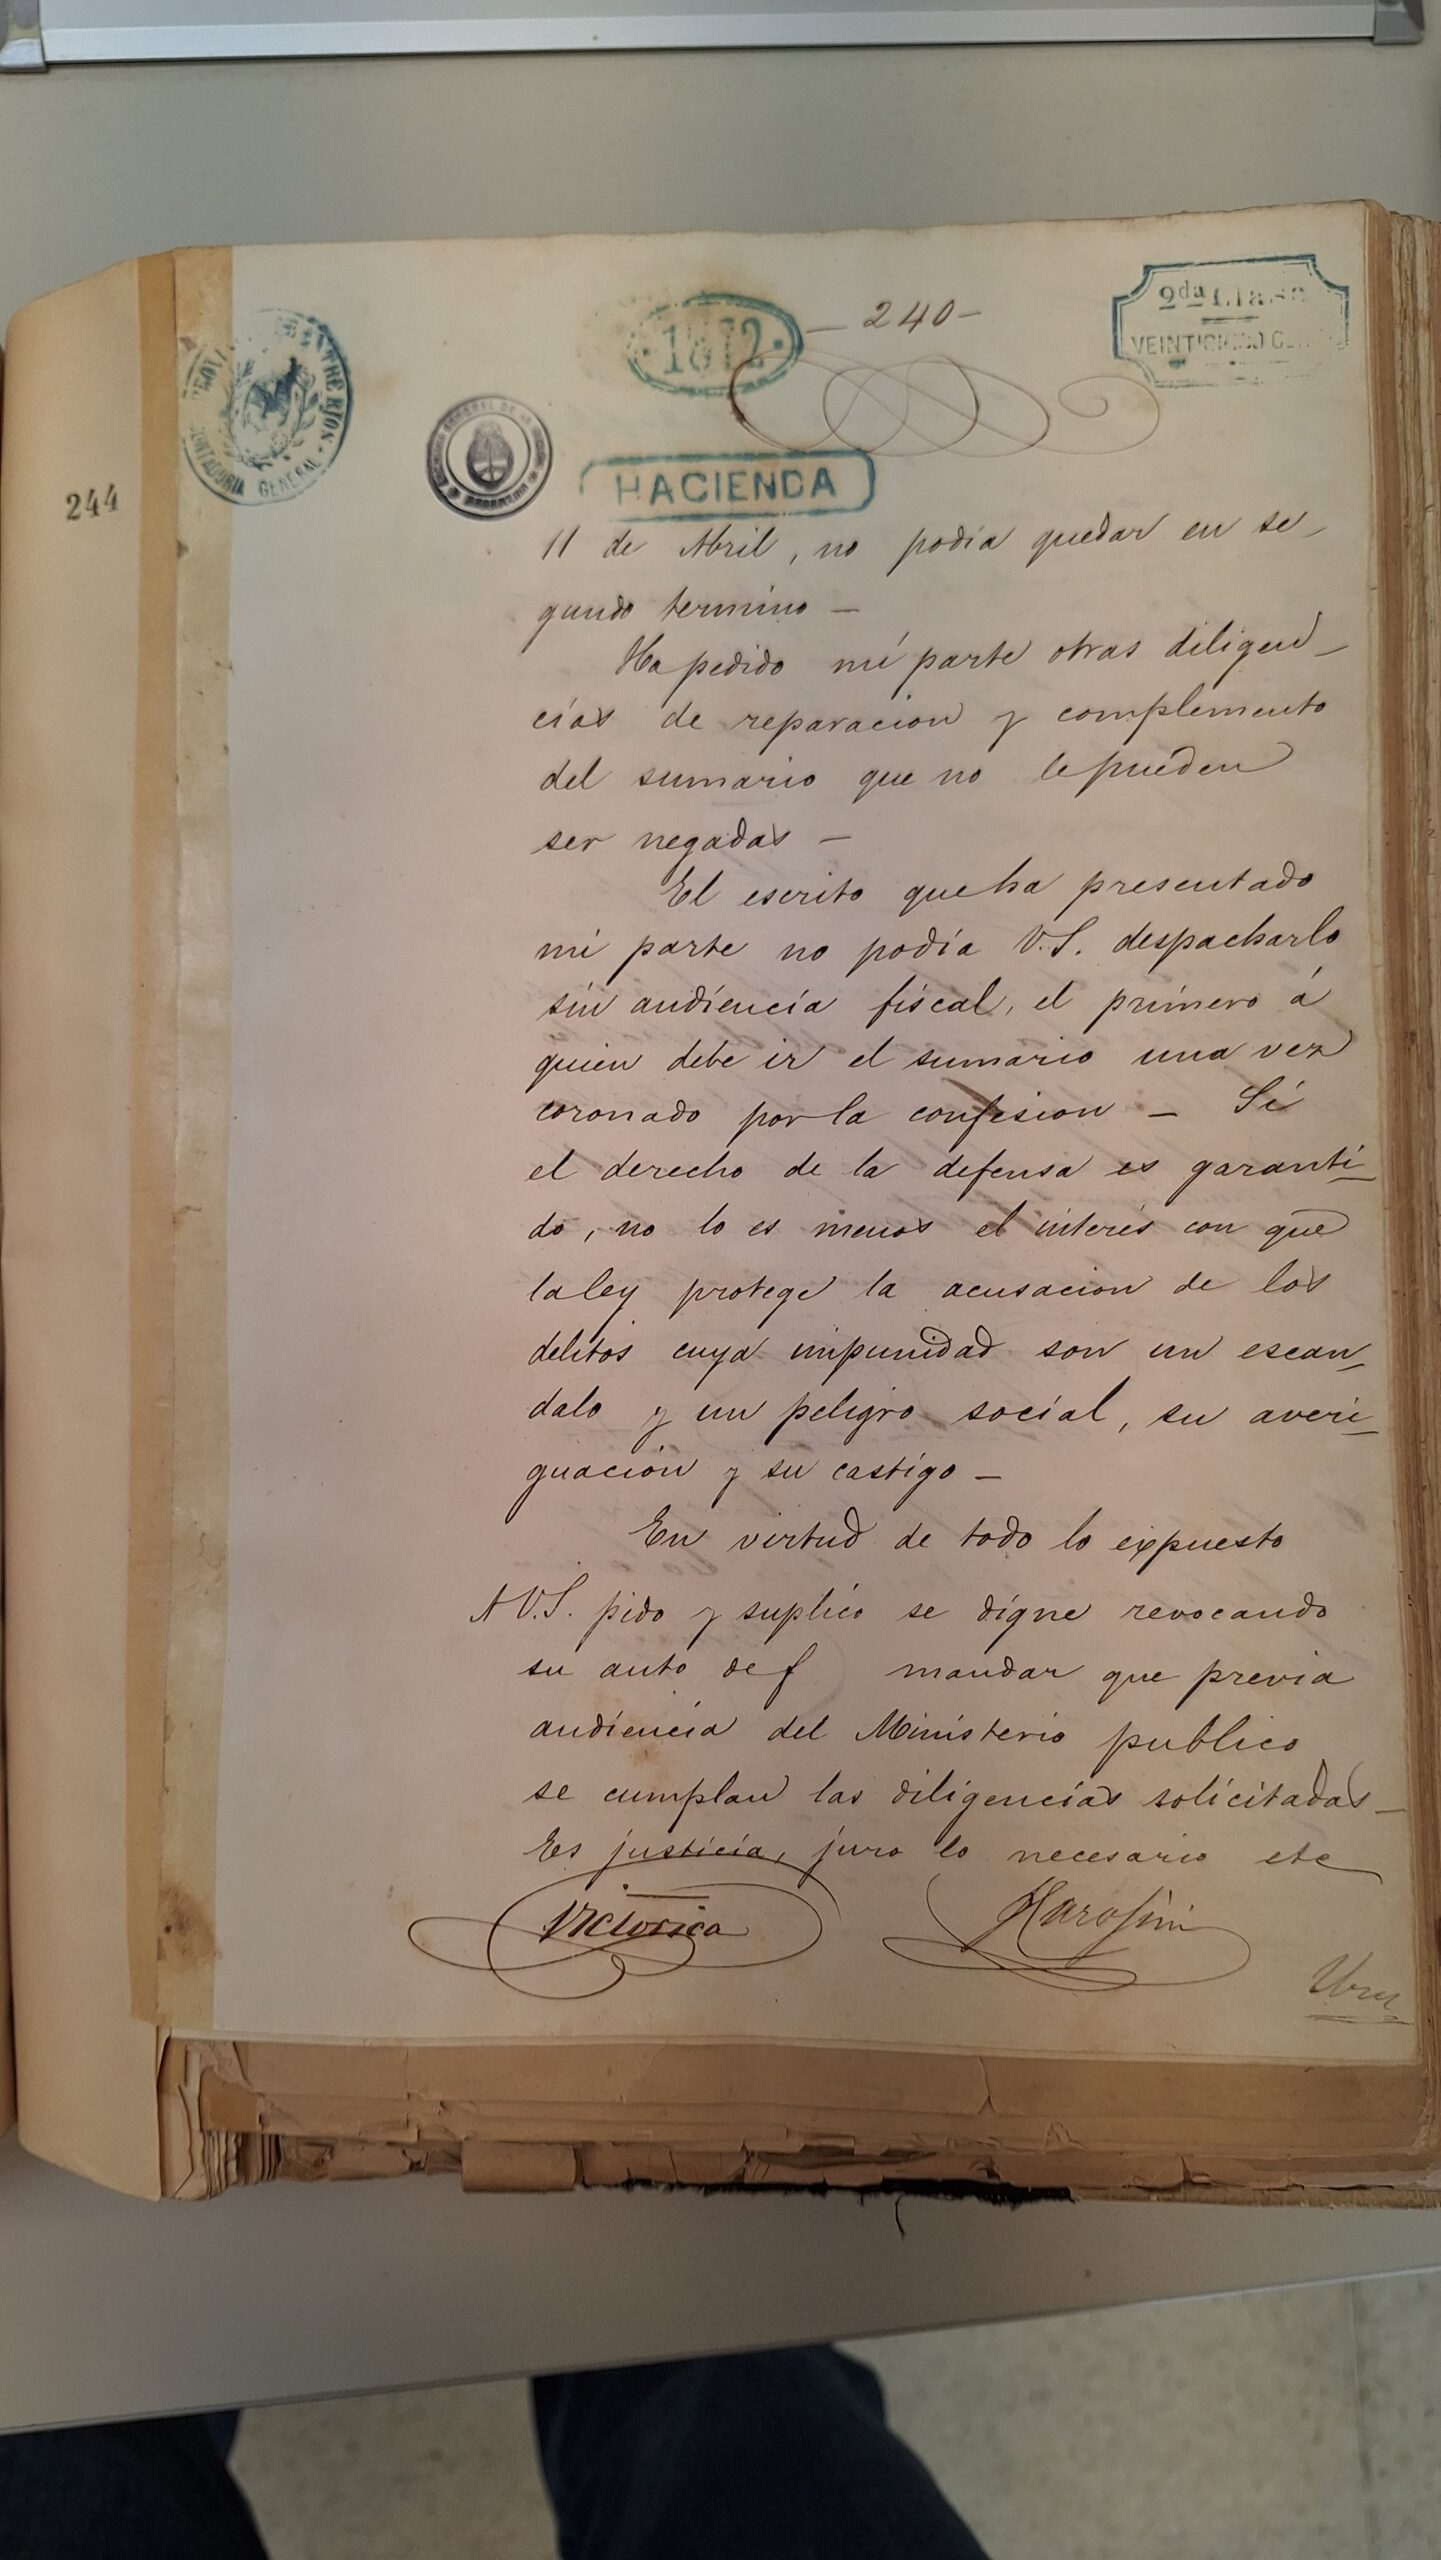 244
1872
- 240 -
2da Clase
VEINTICINCO
ENTRE RIOS
CONTADURIA GENERAL
HACIENDA
11 de Abril, no podia quedar en se-
gundo termino -
Ha pedido mi parte otras diligen-
cias de reparacion y complemento
del sumario que no le pueden
ser negadas -
El escrito que ha presentado
mi parte no podia V.S. despacharlo
sin audiencia fiscal, el primero á
quien debe ir el sumario una vez
coronado por la confesion - Si
el derecho de la defensa es garanti-
do, no lo es menos el interés con que
la ley protege la acusacion de los
delitos cuya impunidad son un escan-
dalo y un peligro social, su averi-
guacion y su castigo -
En virtud de todo lo expuesto
A V.S. pido y suplico se digne revocando
su auto de f mandar que previa
audiencia del Ministerio publico
se cumplan las diligencias solicitadas -
Es justicia, juro lo necesario etc
Victorica